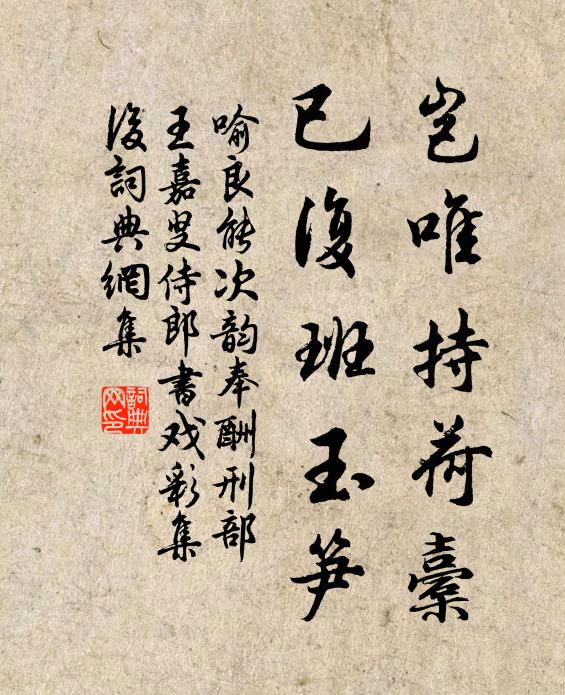 岂唯持荷橐
已復班玉笋
喻良能次韵奉酬刑部
王嘉叟侍郎書戏彩集
後詞典網集
詞典
网印